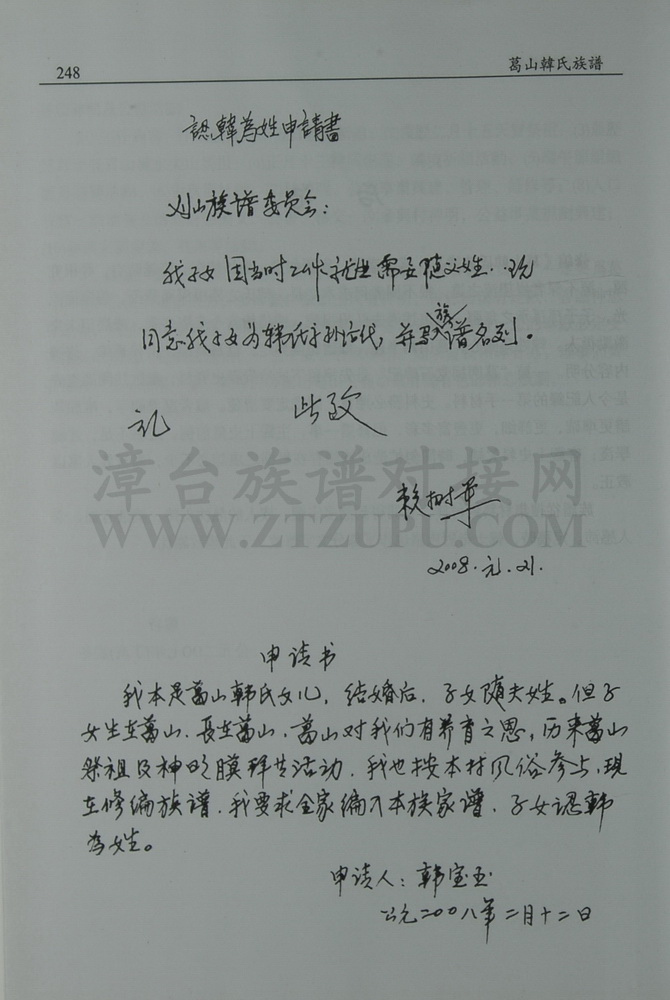 248
葛山韓氏族譜
認韓為姓申請書
刈山族谱委员会:
我子女因当时工作就业需要随父姓.现
同意我子女为韩氏子孙后代,并
族
谱名列。
礼 此致
漳台族谱对接网
WWW.ZTZUPU.COM
赖树革
2008.元.21.
申请书
我本是葛山韩氏女儿,结婚后,子女随夫姓。但子
女生在葛山、長在葛山.葛山对我们有养育之恩,历来葛山
祭祖及神明膜拜等活动,我也按本村风俗参与,现
在修编族谱.我要求全家编入本族家谱.子女認韩
为姓。
申请人:韩宝玉
公元二00八年二月十二日